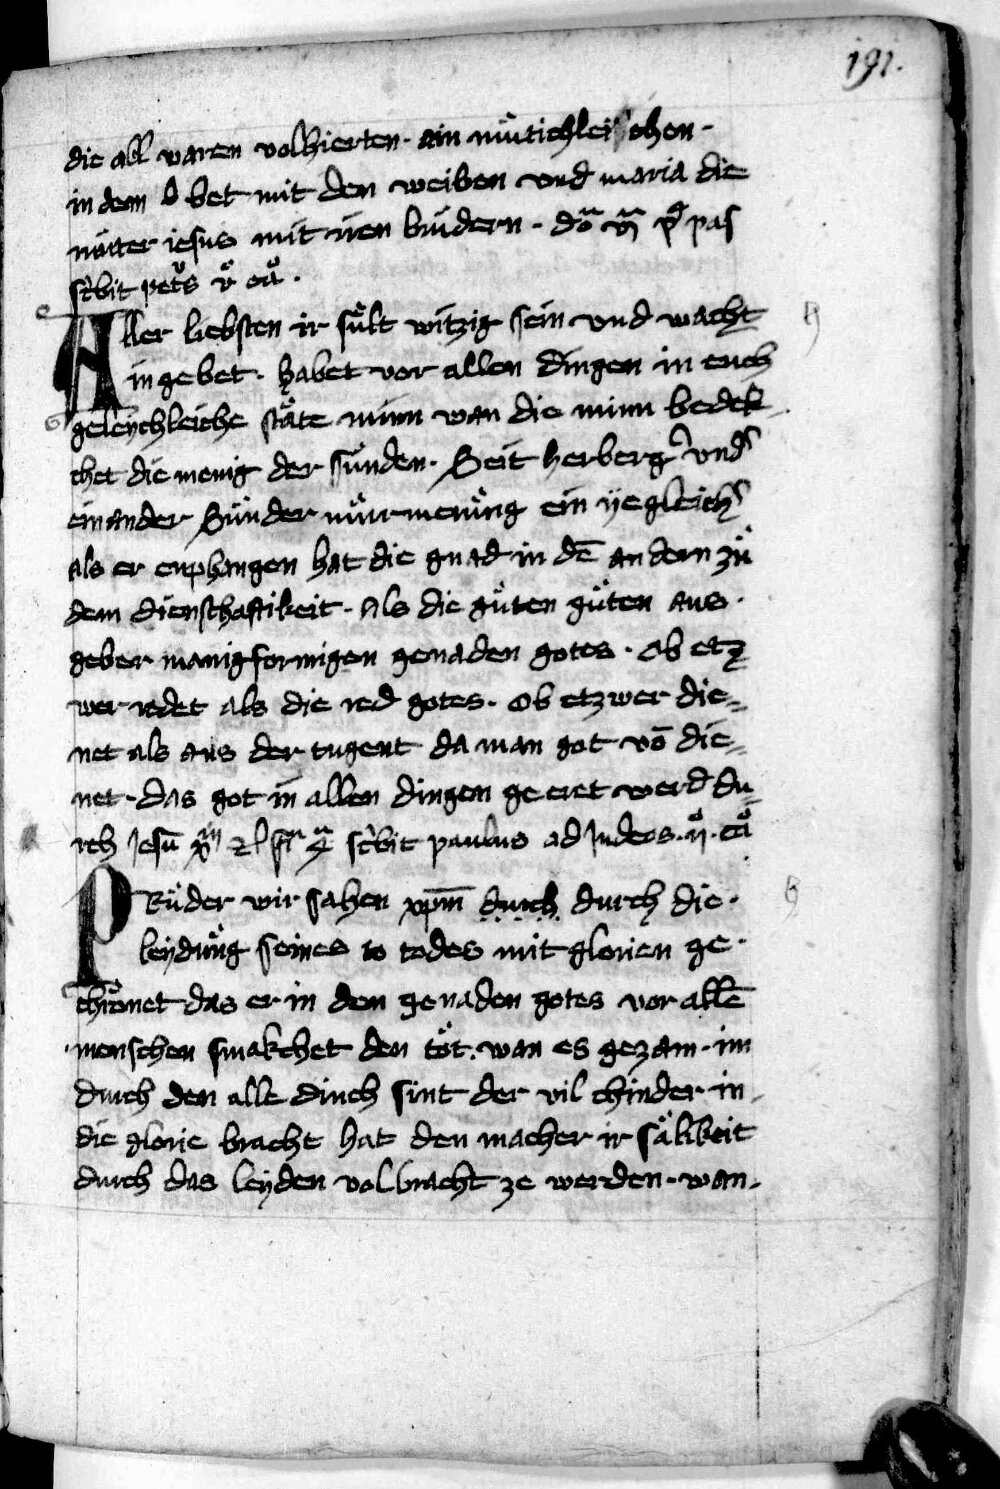 191.
die all waren volhierten. ain mütichleichen.
in dem bet mit den weiben vnd maria die
müter jesus mit iren brüdern.
Aller liebsten ir sült witzig sein vnd wacht
in gebet. habet vor allen dingen in euch
geleychleiche stäte minn wan die minn bedek-
chet die menig der sünden. Seit herberg vnd
einander Sünder mürmerüng ein iegleich
als er enphangen hat die gnad in dē andern zü
dem dienschaftikeit. Als die güten güten aus.
geber manigformigen genaden gotes. Ob etz
wer redet als die red gotes. Ob etzwer die=
net als aus der tugent da man got vō die=
net. das got in allen dingen geeret werd du-
rch Jesū paulus ad Judeos.
Rüder wir sahen xpm̄ durch durch die.
leydüng seines to todes mit glorien ge.
chrönet das er in den genaden gotes vor allē
menschen smakchet den töt. wan es gezam. im
durch den alle dinch sint der vil chinder in.
die glorie bracht hat den macher ir sälikeit
durch das leyden volbracht ze werden. wan.